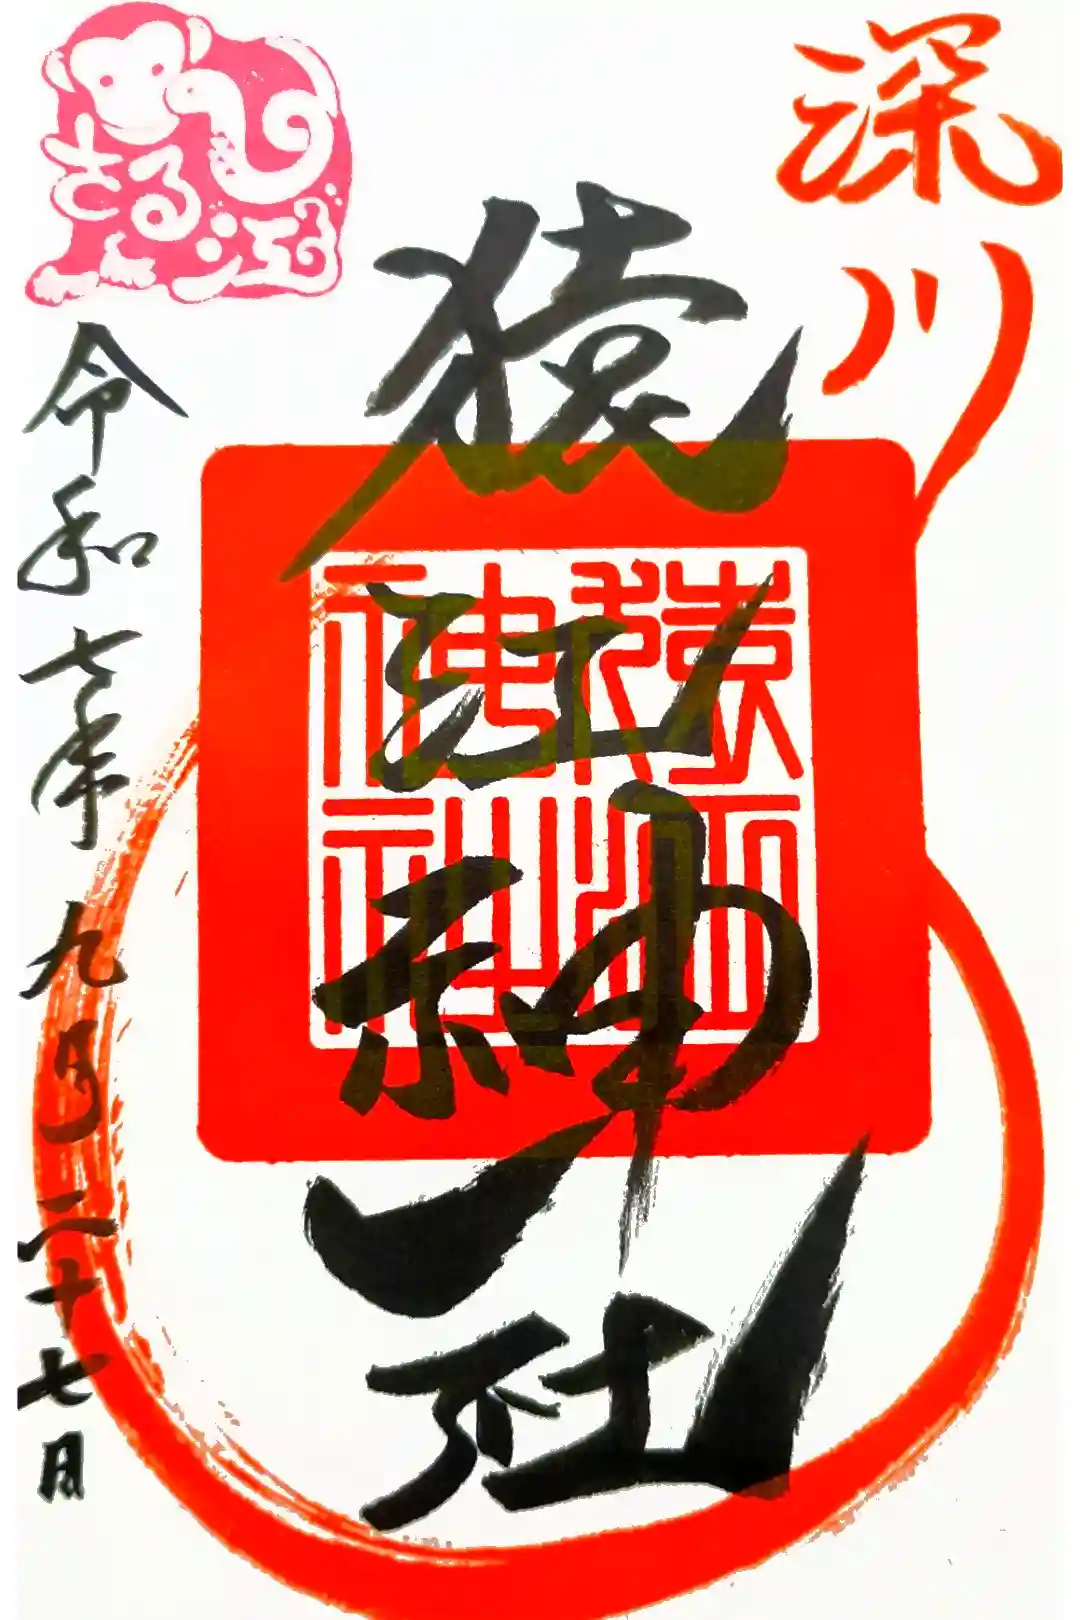 深川
猿江神社
猿江
神社
さる江
令和七年九月二十七日